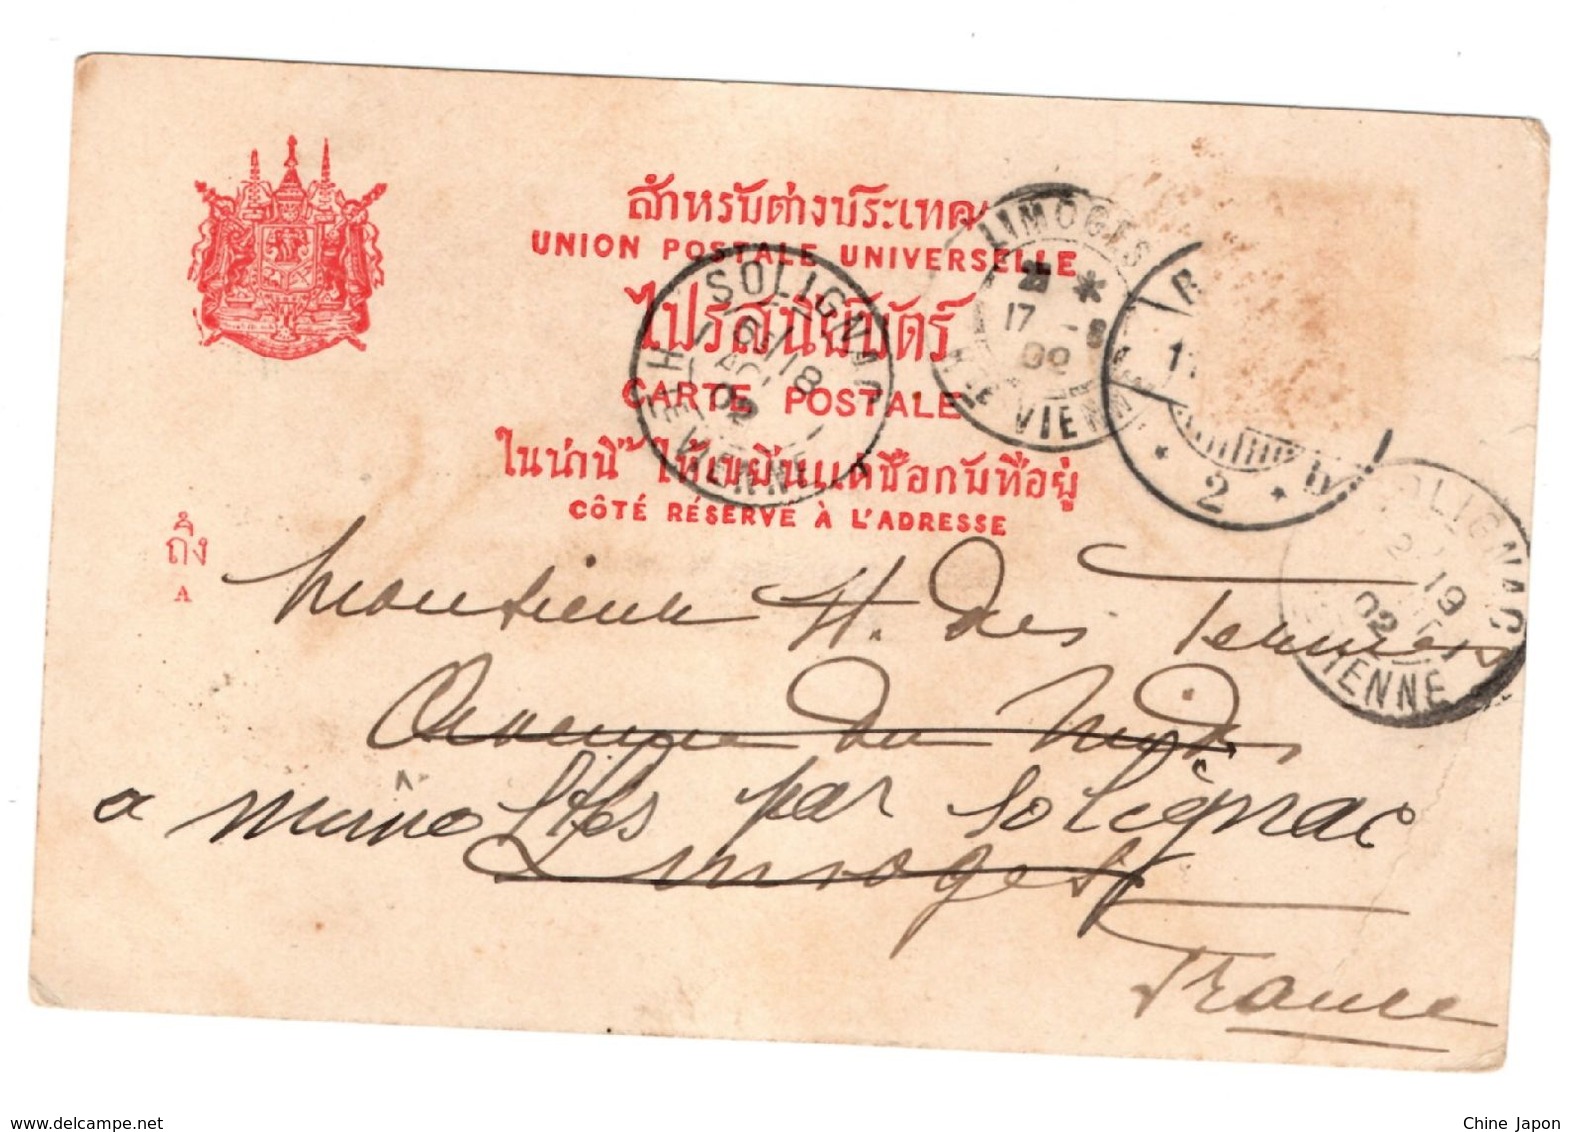 สำหรับต่างประเทศ
UNION POSTALE UNIVERSELLE
ไปรสนียบัตร์
CARTE POSTALE
ในน่านี้ ให้เขียนแต่ชื่อกับที่อยู่
CÔTÉ RÉSERVÉ À L'ADRESSE
ถึง
A
LIMOGES
17 - 8
02
HTE VIENNE
SOLIGNAC
18
02
HTE VIENNE
2
SOLIGNAC
19
02
VIENNE
Monsieur H. des
Avenue du Midi
a par Solignac
Limoges
France
www.delcampe.net
Chine Japon